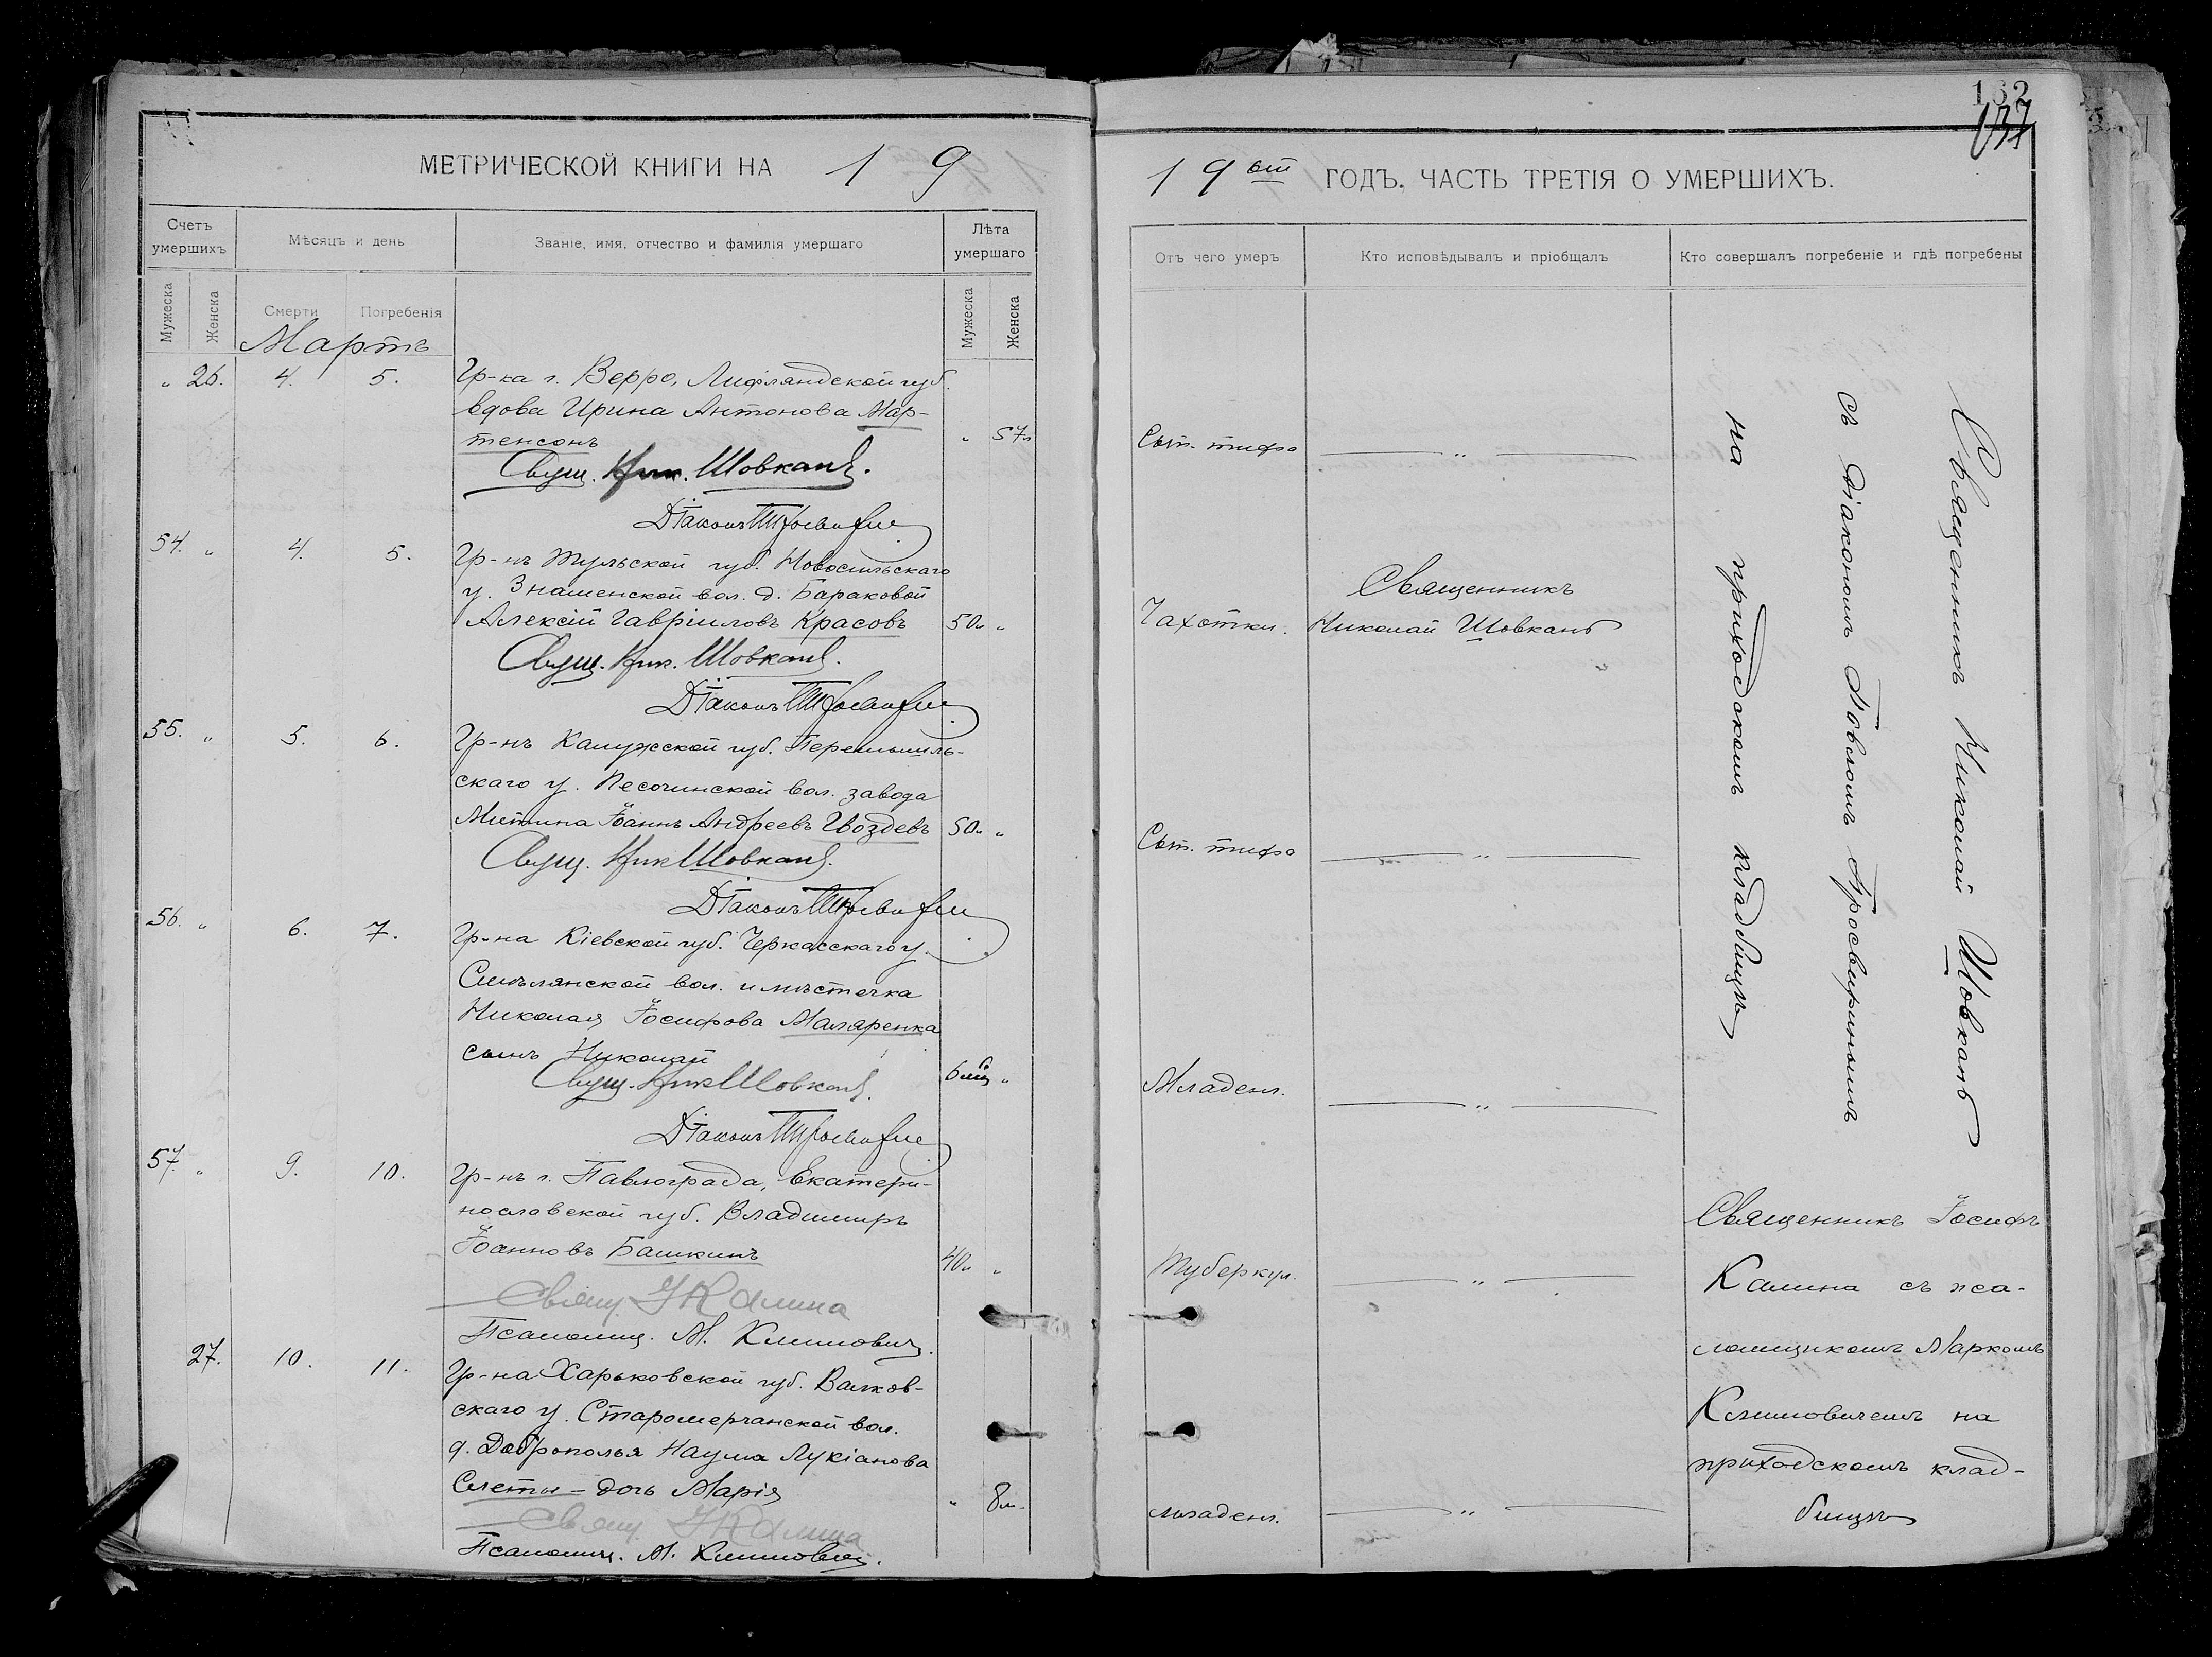 132
137
МЕТРИЧЕСКОЙ КНИГИ НА 1 9
19 ый ГОДЪ, ЧАСТЬ ТРЕТІЯ О УМЕРШИХЪ.
Счетъ умершихъ
Мѣсяцъ и день
Званіе, имя, отчество и фамилія умершаго
Лѣта умершаго
Мужеска
Женска
Смерти
Погребенія
Мужеска
Женска
Отъ чего умеръ
Кто исповѣдывалъ и пріобщалъ
Кто совершалъ погребеніе и гдѣ погребены
Мартъ
" 26. 4. 5. Гр-ка г. Верро, Лифляндской губ.
вдова Ирина Антонова Мар-
тенсонъ " 57л
Свящ. Ник. Шовканъ.
Діаконъ
54. " 4. 5. Гр-нъ Тульской губ. Новосильскаго
у. Знаменской вол. д. Бараковой
Алексій Гавріиловъ Красовъ 50л "
Свящ. Ник. Шовканъ.
Діаконъ
55. " 5. 6. Гр-нъ Калужской губ. Перемышль-
скаго у. Песочинской вол. завода
Митина Іоаннъ Андреевъ Гвоздевъ 50л "
Свящ. Ник Шовканъ.
Діаконъ
56. " 6. 7. Гр-на Кіевской губ. Черкасскаго у.
Смѣлянской вол. и мѣстечка
Николая Іосифова Маляренка
сынъ Николай
6 мц "
Свящ. Ник Шовканъ.
Діаконъ
57. " 9. 10. Гр-нъ г. Павлограда, Екатери-
нославской губ. Владиміръ
Іоанновъ Башкинъ 40л "
Свящ. І Калина
Псаломщ. М. Климович.
27. 10. 11. Гр-на Харьковской губ. Валков-
скаго у. Старомерчанской вол.
д. Доброполья Наума Лукіанова
Слеты - дочь Марія " 8м.
Свящ. І Калина
Псаломщ. М. Климович.
Сып. тифа "
Чахотки. Священникъ
Николай Шовканъ
Сып. тифа "
Младен. "
Туберкул. "
младен. "
Священникъ Николай Шовканъ
съ діакономъ Павломъ Просвиринымъ
на приходскомъ кладбищѣ
Священникъ Іосифъ
Калина съ пса-
ломщикомъ Маркомъ
Климовичемъ на
приходскомъ клад-
бищѣ